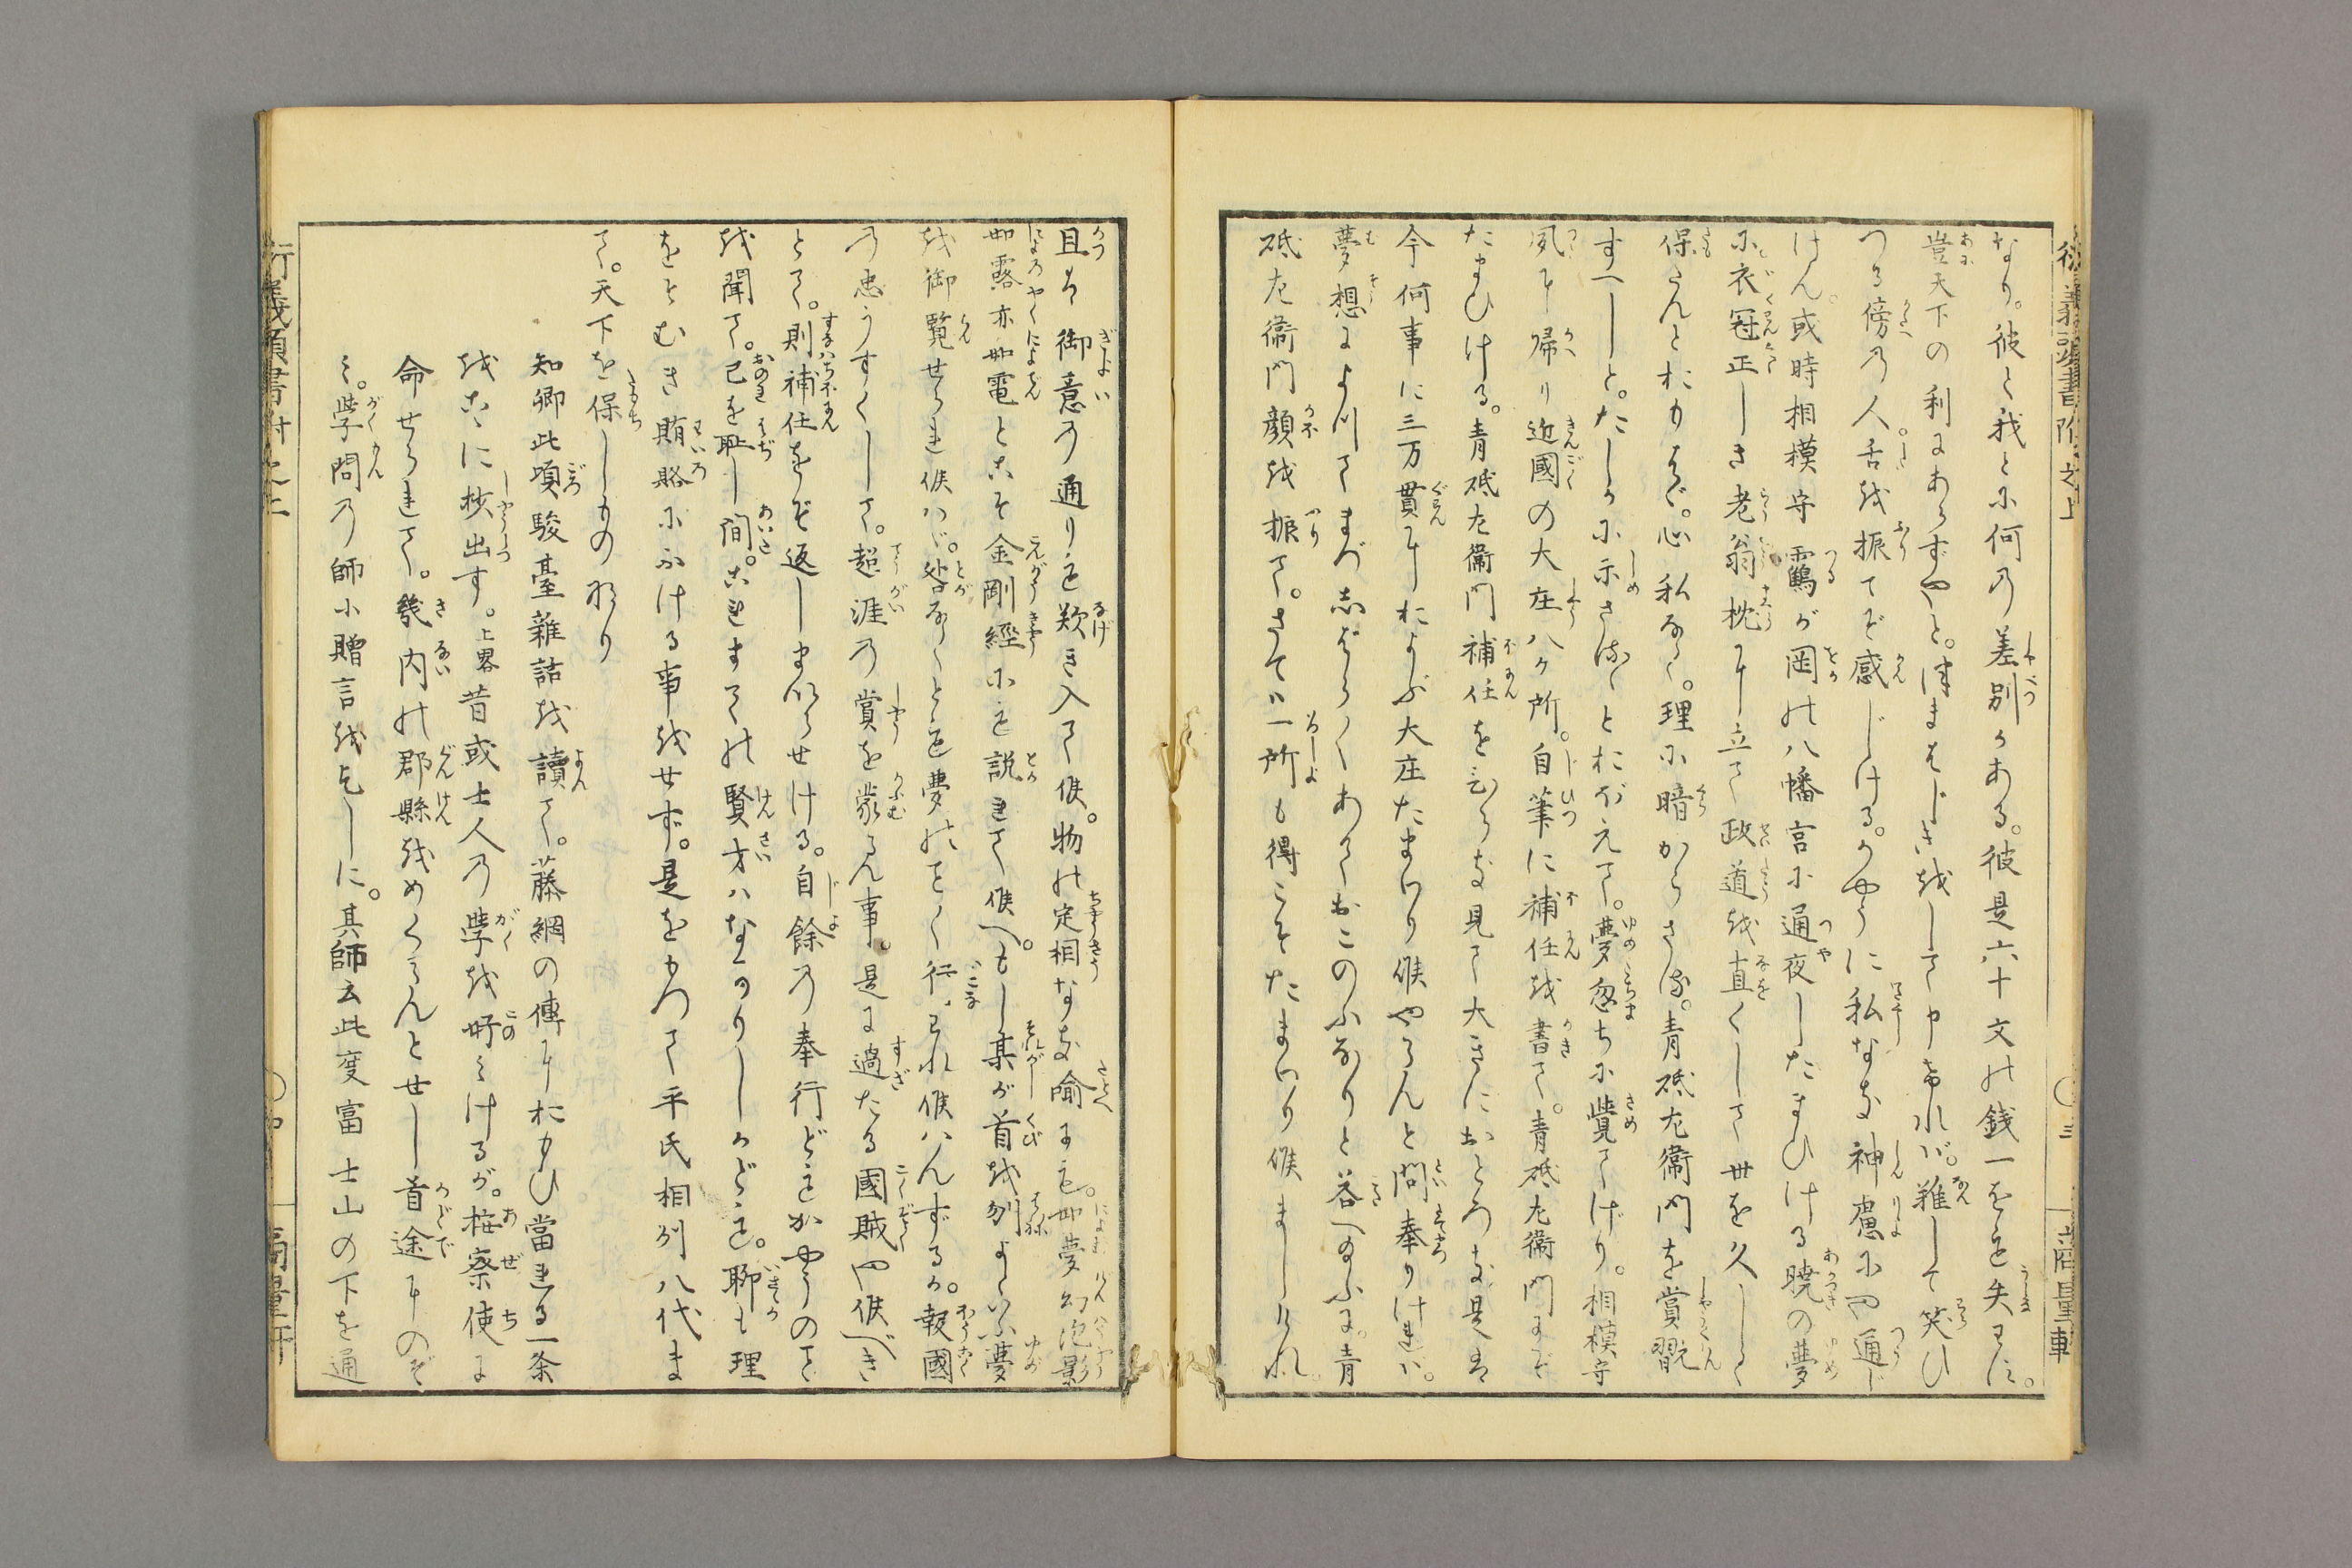 なり。彼と我とに何の差別かある。彼是六十文の銭一をも失はず。
豈天下の利にあらずやと。津まはじきをして申ければ。難して笑ひ
つる傍の人。舌を振てぞ感じける。かやうに私なき神慮にや通じ
けん。或時相模守靏が岡の八幡宮に通夜したまひける暁の夢
に衣冠正しき老翁枕に立て政道を直くして世を久しく
保さんとおもはゞ。心私なく。理に暗からざる。青砥左衛門を賞翫
すべしと。たしかに示さるゝとおぼえて。夢忽ちに覚てけり。相模守
夙に帰り近國の大庄八ヶ所。自筆に補任を書て。青砥左衛門にぞ
たまひける。青砥左衛門補任をひらき見て大きにおどろき是は
今何事に三万貫におよぶ大庄たまはり候やらんと問奉りければ。
夢想によりてまづしばらくあておこのふなりと答へ給ふに。青
砥左衛門顔を振て。さては一所も得こそたまはり候ましけれ。
且は御意の通りも歎き入て候。物の定相なき喩にも。如夢幻泡影
如露亦如電とこそ金剛經にも説れて候へ。もし某が首を刎よといふ夢
を御覧せられ候はゞ。咎なくとも夢のごとく行はれ候はんずるか。報國
の忠うすくして。超涯の賞を蒙らん事。是に過たる國賊や候べき
とて。則補任をぞ返しまいらせける。自餘の奉行どもかやうのこと
を聞て。己を恥し間。これまての賢才はなかりしかども。聊も理
をそむき賄賂にふける事をせず。是をもつて平氏相州八代ま
て。天下を保しものなり
知卿此頃駿臺雑話を讀て。藤綱の傳におもひ當れる一条
をこゝに校出す。上畧昔或士人の学を好みけるが。按察使に
命せられて。畿内の郡縣をめくらんとせし首途にのぞ
み。学問の師に贈言を乞しに。其師云此度富士山の下を通